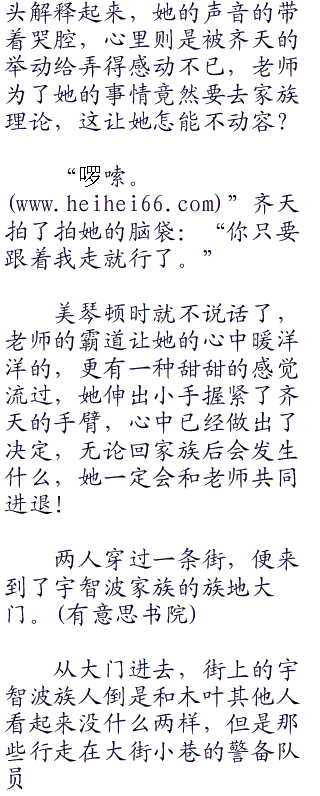 头解释起来，她的声音的带
着哭腔，心里则是被齐天的
举动给弄得感动不已，老师
为了她的事情竟然要去家族
理论，这让她怎能不动容？
“啰嗦。
(www.heihei66.com)”齐天
拍了拍她的脑袋：“你只要
跟着我走就行了。”
美琴顿时就不说话了，
老师的霸道让她的心中暖洋
洋的，更有一种甜甜的感觉
流过，她伸出小手握紧了齐
天的手臂，心中已经做出了
决定，无论回家族后会发生
什么，她一定会和老师共同
进退！
两人穿过一条街，便来
到了宇智波家族的族地大
门。(有意思书院)
从大门进去，街上的宇
智波族人倒是和木叶其他人
看起来没什么两样，但是那
些行走在大街小巷的警备队
员